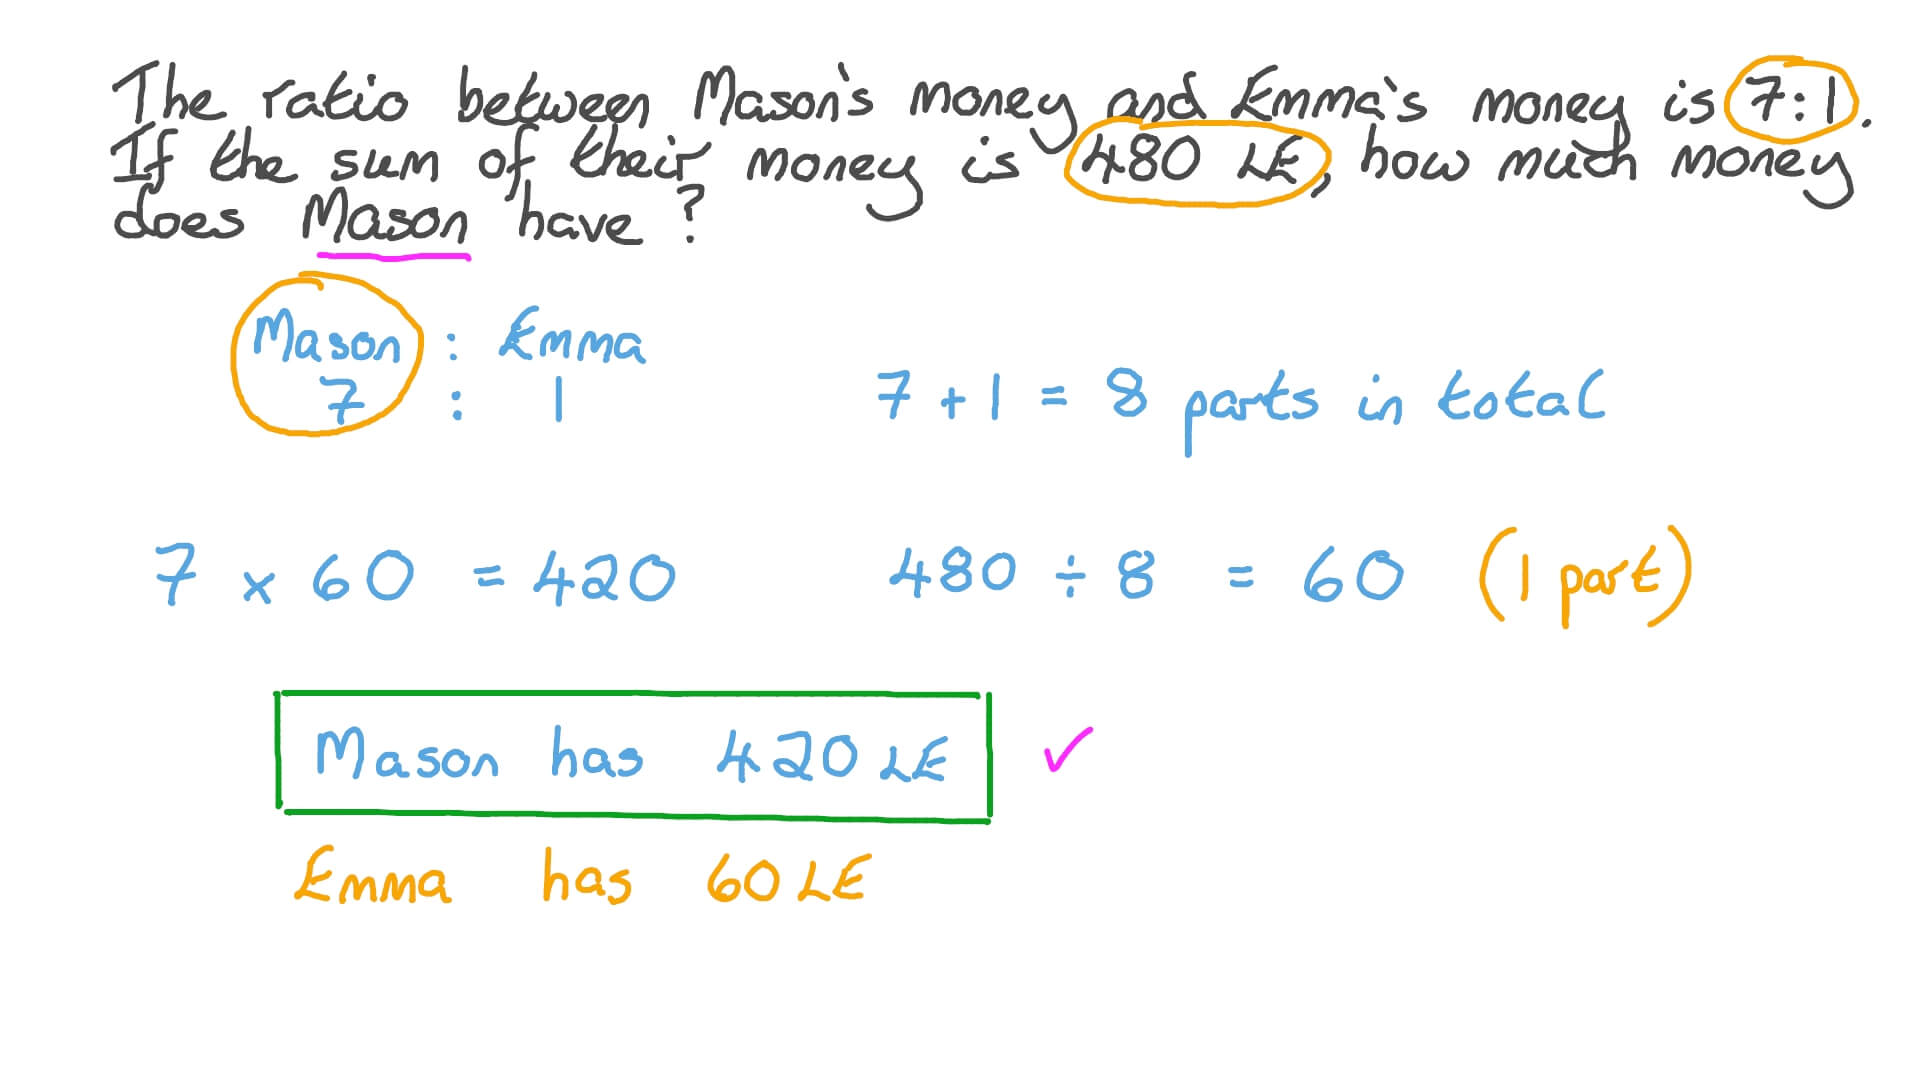 The ratio between Mason's money and Emma's money is 7:1.
If the sum of their money is 480 LE, how much money
does Mason have?
Mason : Emma
7 : 1
7 + 1 = 8 parts in total
7 × 60 = 420
480 ÷ 8 = 60 (1 part)
Mason has 420 LE ✓
Emma has 60 LE